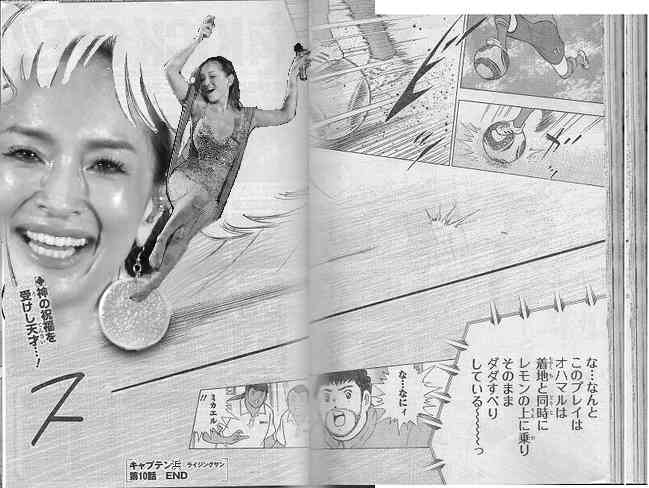 な…なんと
このプレイは
オハマルは
着地と同時に
レモンの上に乗り
そのまま
ダダすべり
している〜〜〜〜っ
な…なにィ
ミカエル
!!
ス
神の祝福を
受けし天才…!
キャプテン浜 ライジングサン
第10話 END